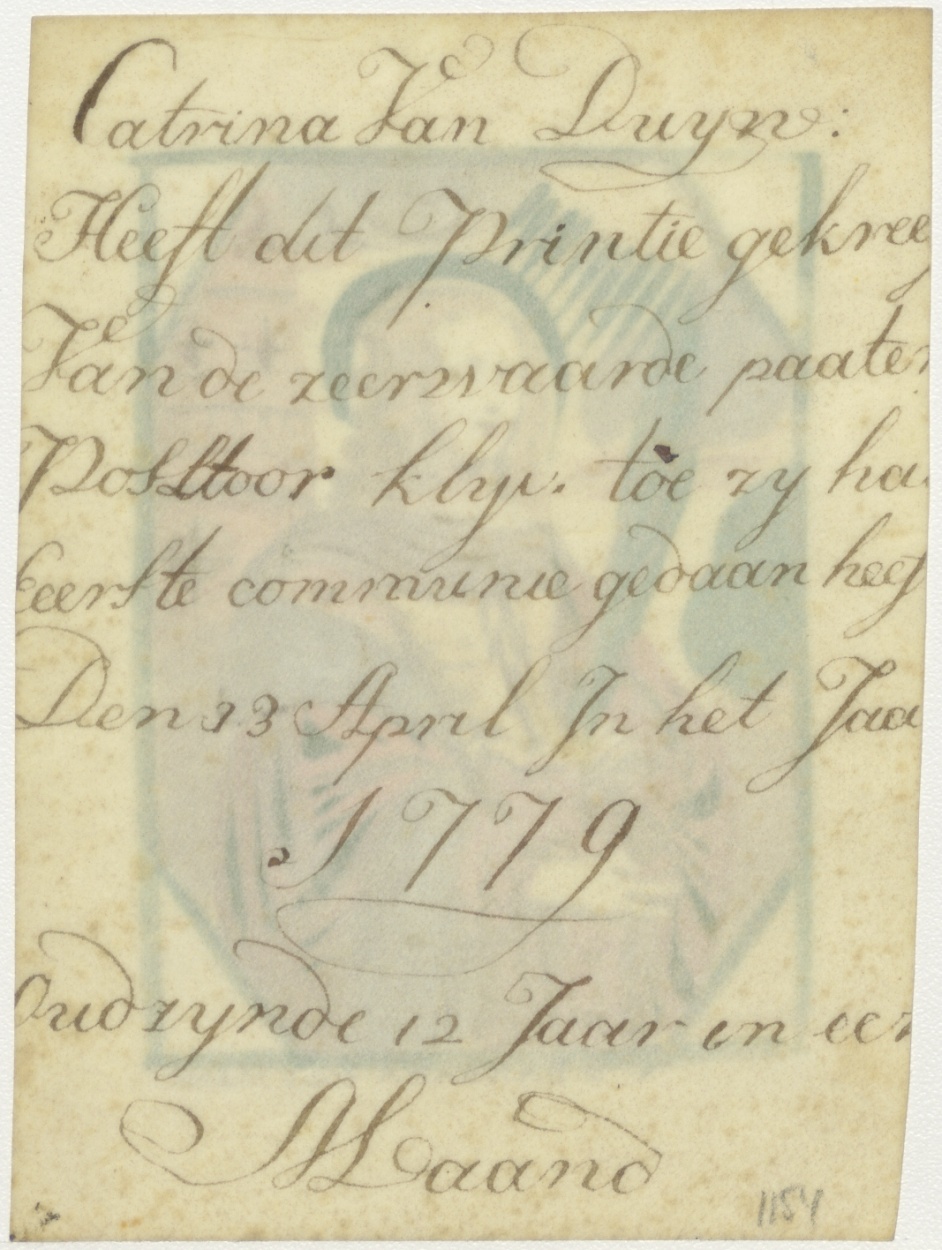 Catrina Van Duyn:
Heeft dit Printie gekree
Van de zeerwaarde paater
Posttoor klyn. toe zy ha
Eeerste communie gedaan heef
Den 13 April In het Jaa
1779
Oudzynde 12 Jaar en een
Maand
1154